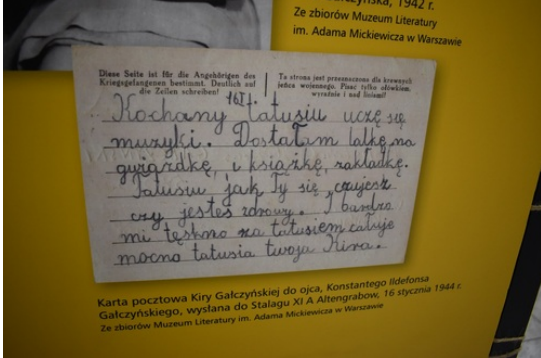 czyńska, 1942 r.
Ze zbiorów Muzeum Literatury
im. Adama Mickiewicza w Warszawie
Diese Seite ist für die Angehörigen des
Kriegsgefangenen bestimmt. Deutlich auf
die Zeilen schreiben!
Ta strona jest przeznaczona dla krewnych
jeńca wojennego. Pisac tylko ołówkiem,
wyraźnie i nad liniami!
16 I.
Kochany tatusiu uczę się
muzyki. Dostałam lalkę na
gwiązdkę, i książkę, zakładkę.
Tatusiu jak Ty się czujesz
czy jesteś zdrowy. I bardzo
mi tęskno za tatusiem całuje
mocno tatusia twoja Kira.
Karta pocztowa Kiry Gałczyńskiej do ojca, Konstantego Ildefonsa
Gałczyńskiego, wysłana do Stalagu XI A Altengrabow, 16 stycznia 1944 r.
Ze zbiorów Muzeum Literatury im. Adama Mickiewicza w Warszawie